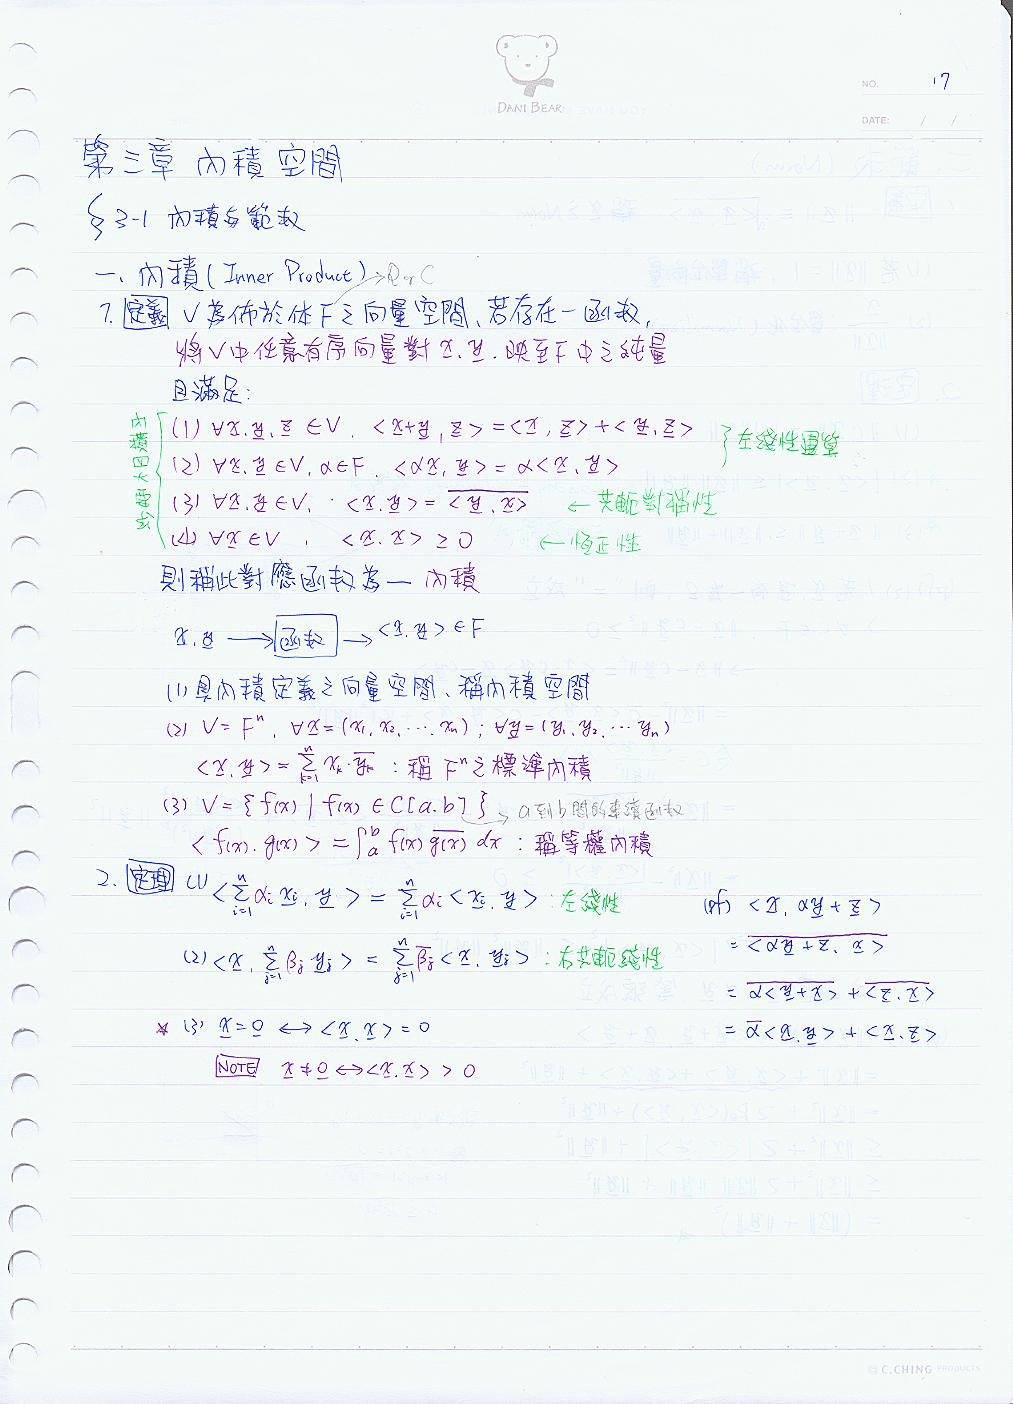 DANI BEAR
NO. 17
DATE: / /
第三章 內積空間
§3-1 內積與範數
一、內積(Inner Product) → R or C
1. 定義 V為佈於体F之向量空間、若存在一函數,
將V中任意有序向量對x, y, 映至F中之純量
且滿足:
內積四大
(1) ∀x, y, z ∈ V, <x+y, z> = <x, z> + <y, z>
(2) ∀x, y ∈ V, α ∈ F, <αx, y> = α<x, y>
} 左線性運算
(3) ∀x, y ∈ V, <x, y> = \overline{<y, x>} ← 共軛對稱性
(4) ∀x ∈ V, <x, x> ≥ 0 ← 恒正性
則稱此對應函數為一內積
x, y → 函數 → <x, y> ∈ F
(1) 具內積定義之向量空間、稱內積空間
(2) V = Fⁿ, ∀x = (x₁, x₂, ⋯, xₙ) ; ∀y = (y₁, y₂, ⋯ yₙ)
<x, y> = \sum_{k=1}^{n} x_k · \overline{y_k} : 稱Fⁿ之標準內積
(3) V = { f(x) | f(x) ∈ C[a,b] } → a到b間的連續函數
<f(x), g(x)> = ∫_a^b f(x) \overline{g(x)} dx : 稱等權內積
2. 定理 (1) <\sum_{i=1}^{n} α_i x_i, y> = \sum_{i=1}^{n} α_i <x_i, y> : 左線性
(2) <x, \sum_{j=1}^{n} β_j y_j> = \sum_{j=1}^{n} \overline{β_j} <x, y_j> : 右共軛線性
★ (3) x = 0 ↔ <x, x> = 0
NOTE x ≠ 0 ↔ <x, x> > 0
(pf) <x, αy + z>
= \overline{<x, z + αy>}
= \overline{α<x+y>} + \overline{<x, z>}
= \overline{α}<x, y> + <x, z>
© C.CHING PRODUCTS